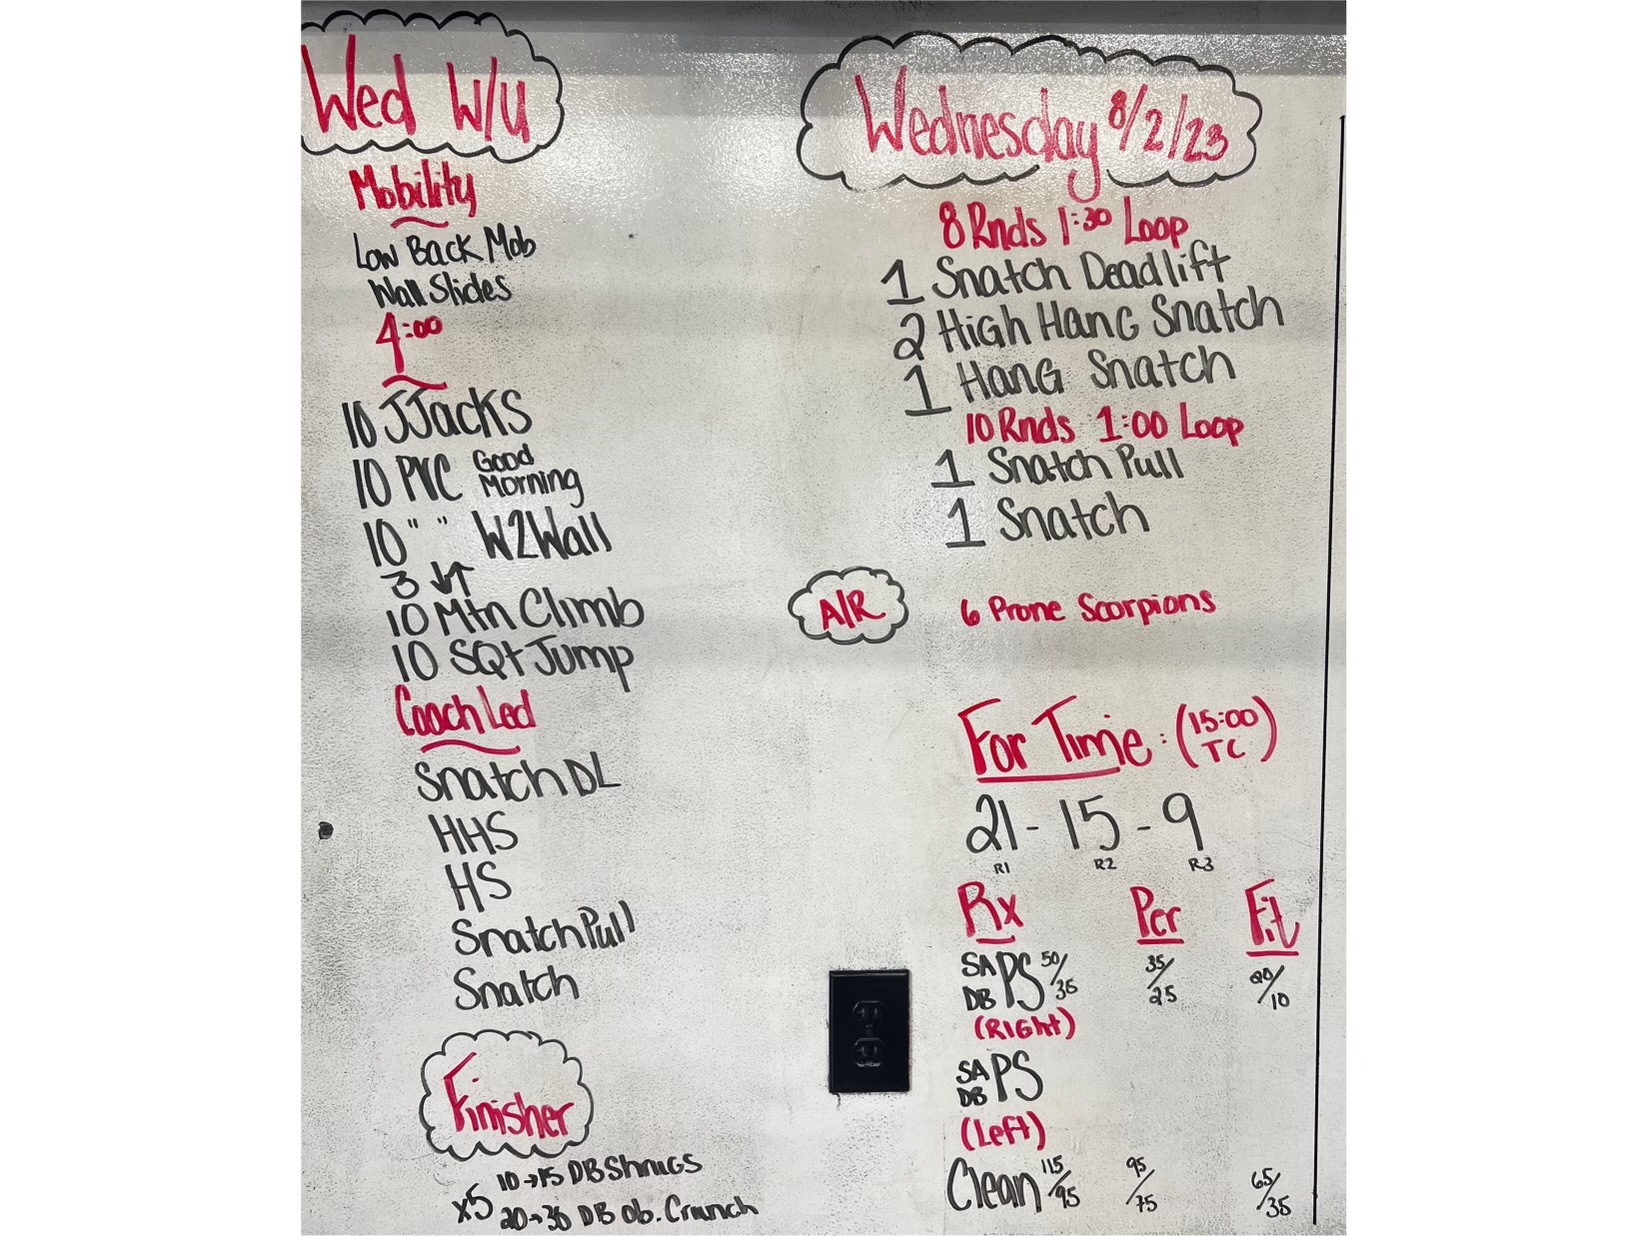 Wed W/U
Mobility
Low Back Mob
Wall Slides
4:00
10 JJacks
10 PVC Good Morning
10 " " W2Wall
3 ↓↑
10 Mtn Climb
10 SQt Jump
Coach Led
Snatch DL
HHS
HS
Snatch Pull
Snatch
Finisher
x5
10→15 DB Shrugs
20→30 DB Ob. Crunch
Wednesday 8/2/23
8 Rnds 1:30 Loop
1 Snatch Deadlift
2 High Hang Snatch
1 Hang Snatch
10 Rnds 1:00 Loop
1 Snatch Pull
1 Snatch
A/R 6 Prone Scorpions
For Time: (15:00 TC)
21 - 15 - 9
R1 R2 R3
Rx Per Fit
SA DB PS 50/35 35/25 20/10
(Right)
SA DB PS
(Left)
Clean 115/95 95/75 65/35